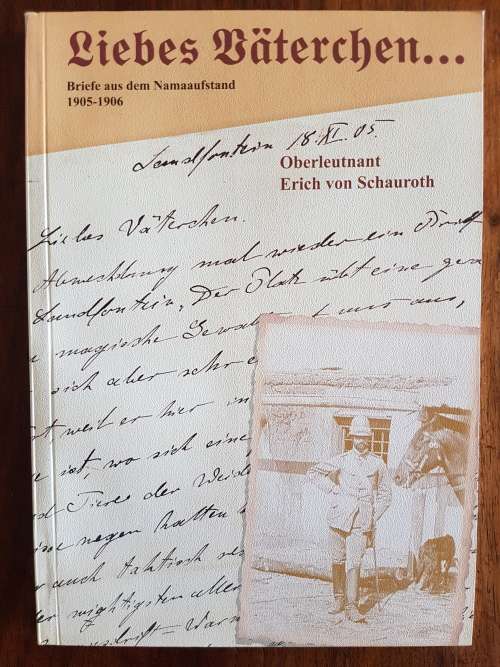 Liebes Väterchen...
Briefe aus dem Namaaufstand
1905-1906
Oberleutnant
Erich von Schauroth
Sandfontein 18. XI. 05.
Liebes Väterchen.
Abwechslung mal wieder ein Brief
Sandfontein, Der Platz übt eine
magische Gewalt auf uns aus,
sich aber sehr
weil er hier in
ist, wo sich eine
Tiere der Weide
auch taktisch
der wichtigsten aller